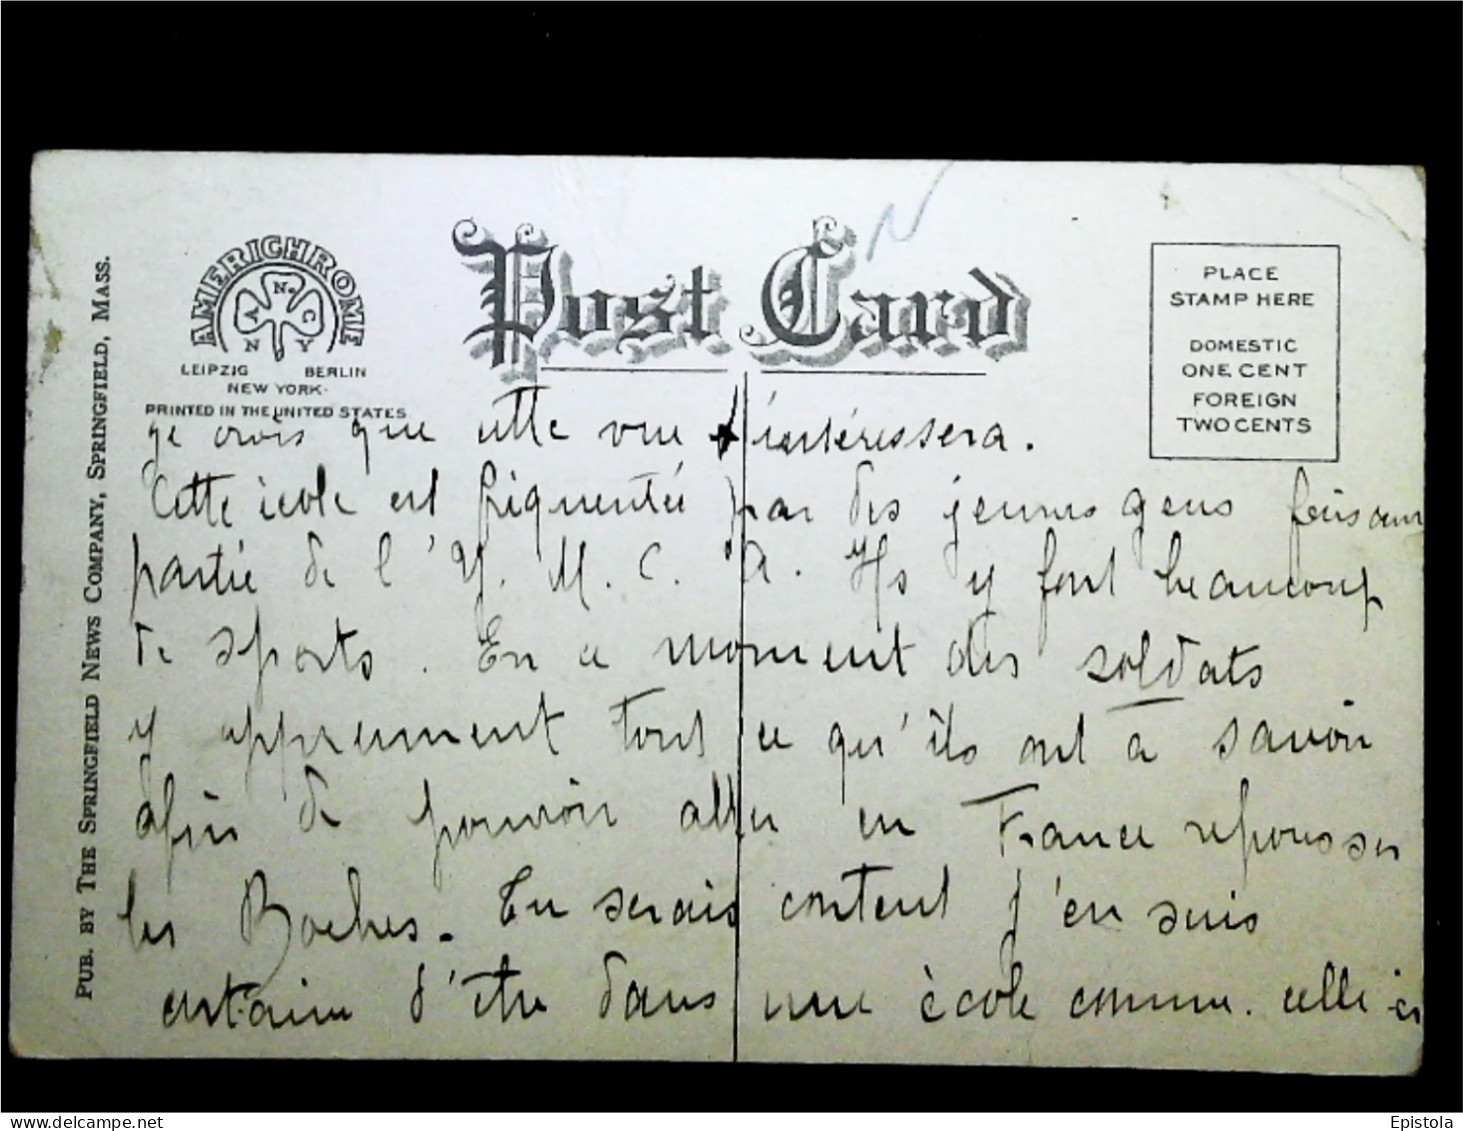 Post Card
AMERICHROME
A.N.C.
N Y
LEIPZIG BERLIN
NEW YORK
PRINTED IN THE UNITED STATES
PLACE
STAMP HERE
DOMESTIC
ONE CENT
FOREIGN
TWO CENTS
PUB. BY THE SPRINGFIELD NEWS COMPANY, SPRINGFIELD, MASS.
je crois que cette vue t'intéressera.
Cette école est fréquentée par des jeunes gens faisant
partie de l'Y. M. C. A. Ils y font beaucoup
de sports. En ce moment des soldats
y apprennent tout ce qu'ils ont à savoir
afin de pouvoir aller en France repousser
les Boches. Tu serais content j'en suis
certaine d'être dans une école comme celle-ci
delcampe.net
Epistola